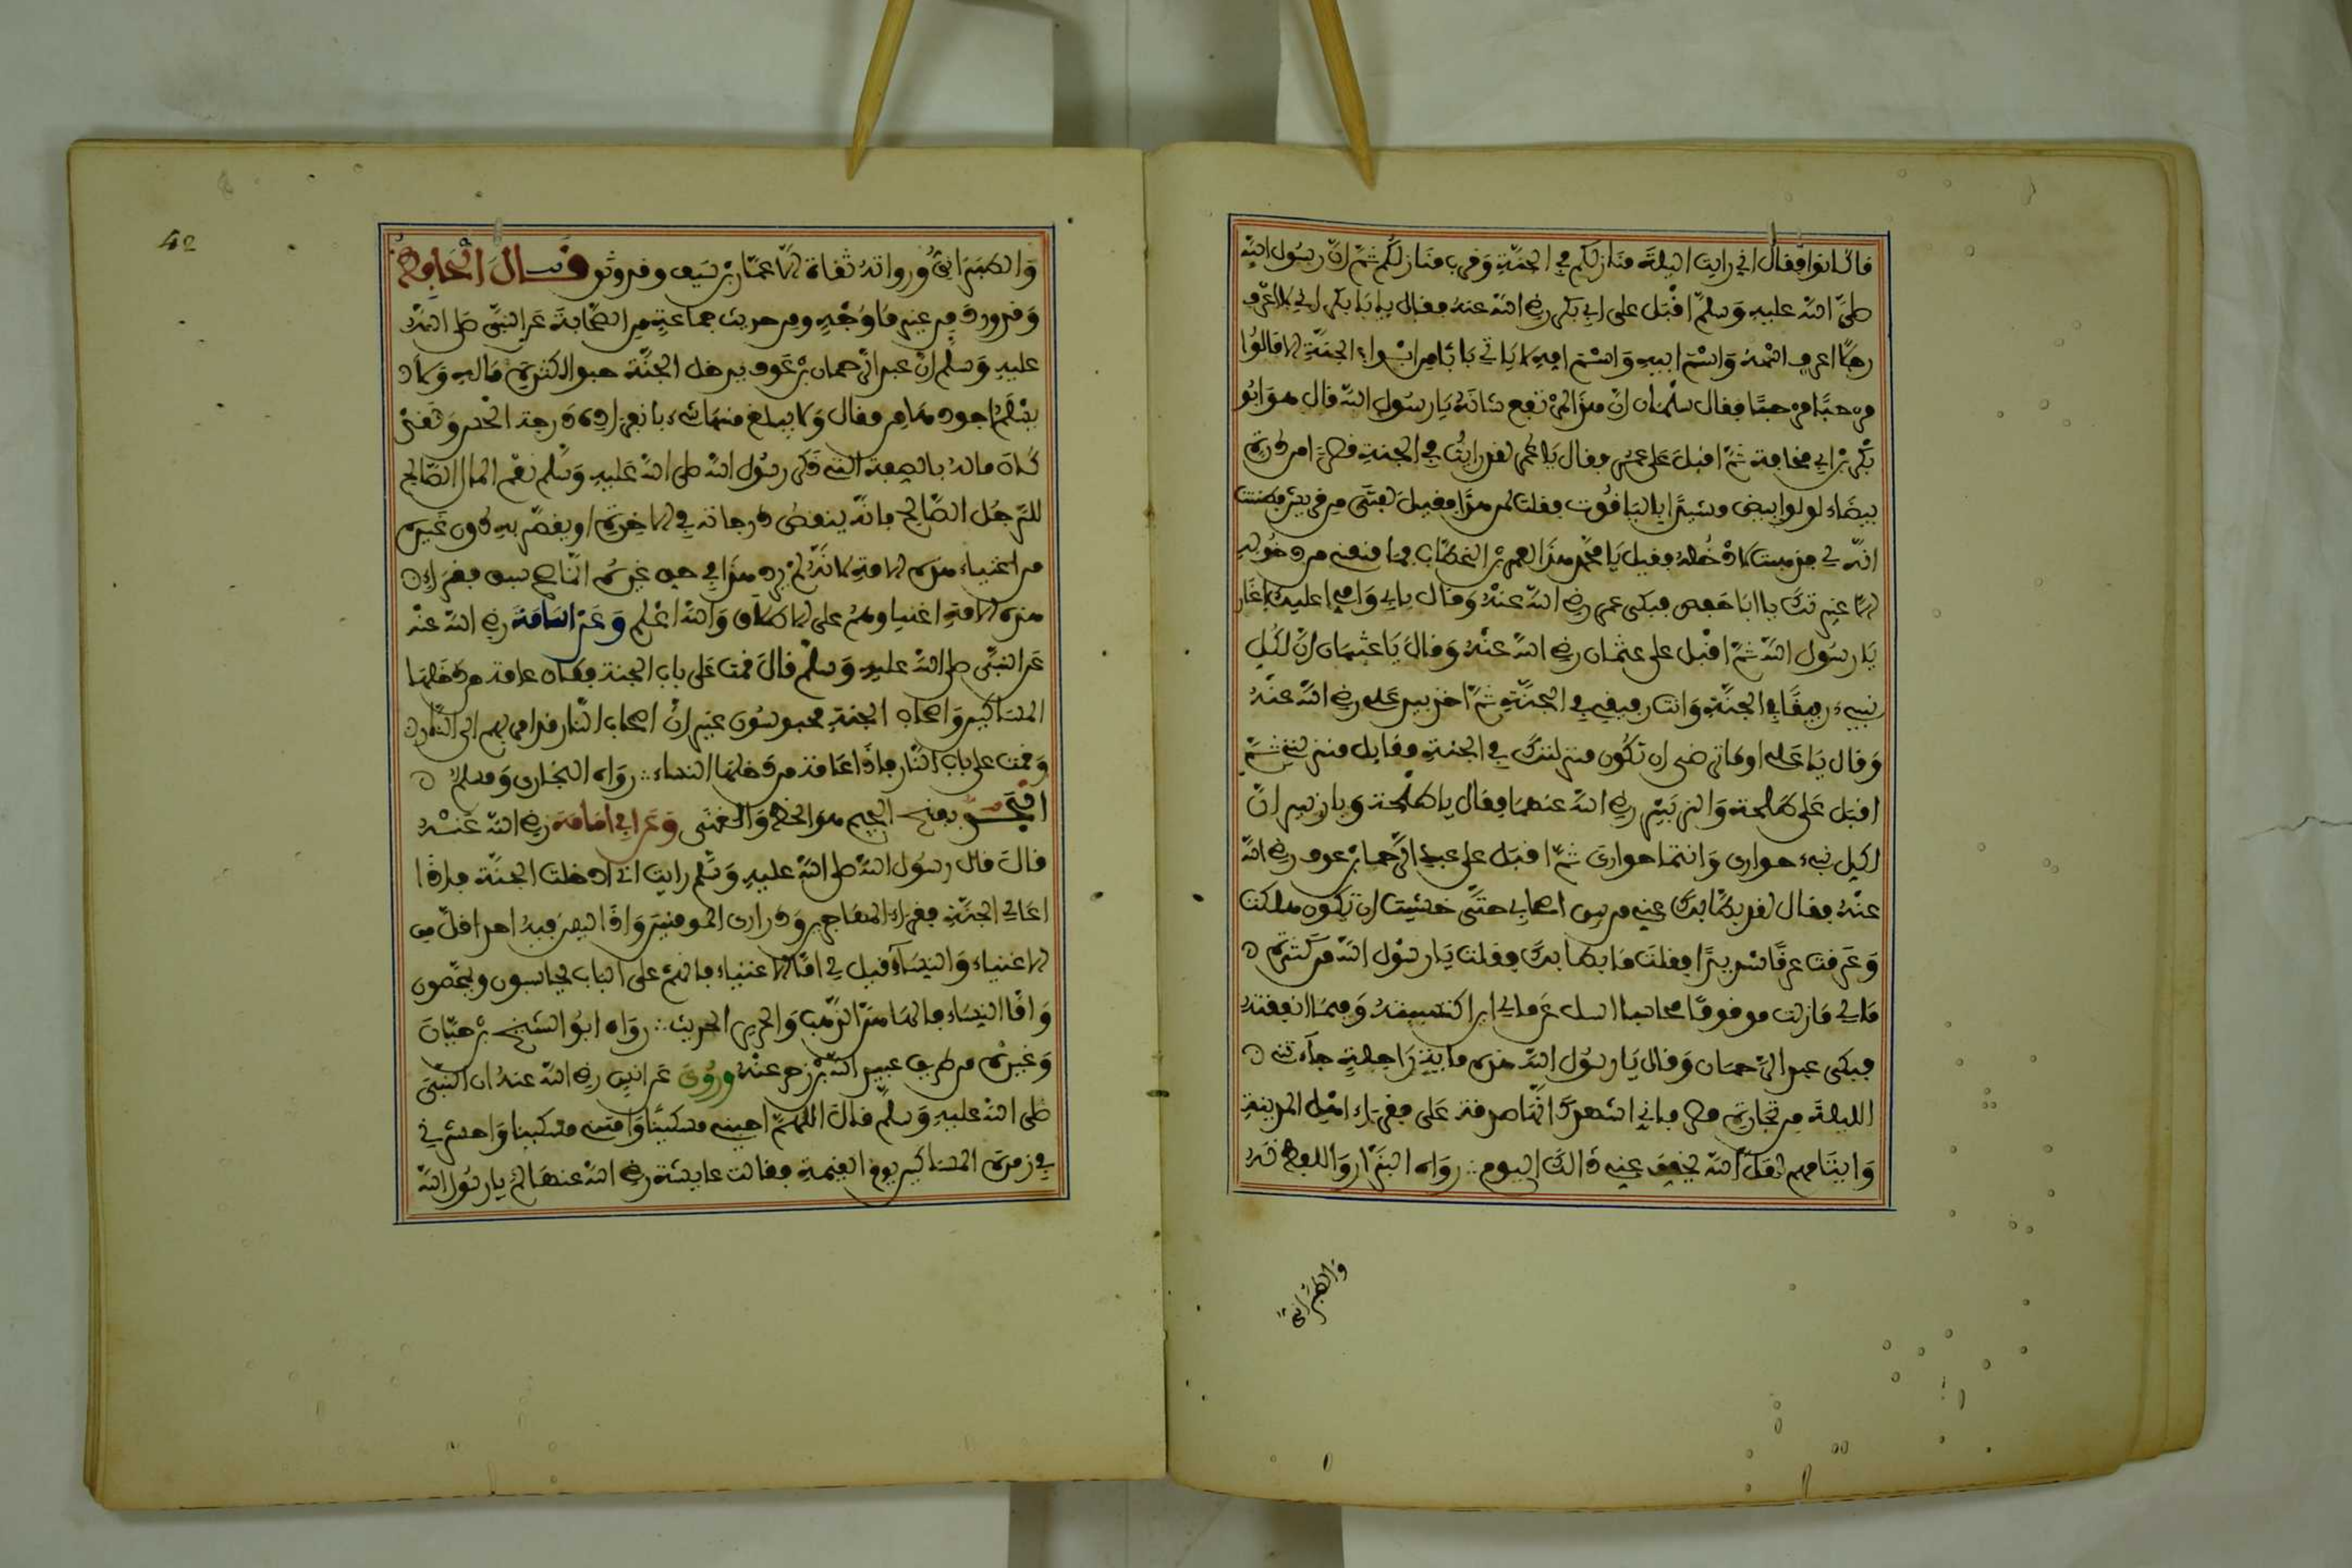 قال انوا فقال اني رايت الليلة منازلكم في الجنة وقرب منازلكم ثم ان رسول الله
صلى الله عليه وسلم اقبل على ابي بكر رضي الله عنه فقال يا با بكر اني لاعرف
رجلا اعرف اسمه واسم ابيه واسم امه لا ياتي بابا من ابواب الجنة الا قالوا
مرحبا مرحبا فقال سلمان ان هذا لمرتفع شانه يا رسول الله قال هو ابو
بكر بن ابي قحافة ثم اقبل على عمر فقال يا عمر لقد رايت في الجنة قصرا من درة
بيضاء لولوا ابيض مشيدا بالياقوت فقلت لمن هذا فقيل لفتى من قريش فظننت
انه لي فذهبت لادخله فقيل يا محمد هذا لعمر بن الخطاب فما منعني من دخوله
الا غيرتك يا ابا حفص فبكى عمر رضي الله عنه وقال بابي وامي اعليك اغار
يا رسول الله ثم اقبل على عثمان رضي الله عنه وقال يا عثمان ان لكل
نبيء رفيقا في الجنة وانت رفيقي في الجنة ثم اخذ بيد علي رضي الله عنه
وقال يا علي اوما ترضى ان تكون منزلتك في الجنة مقابل منزلتي ثم
اقبل على طلحة والزبير رضي الله عنهما فقال يا طلحة ويا زبير ان
لكل نبيء حواري وانتما حواري ثم اقبل على عبد الرحمان بن عوف رضي الله
عنه فقال لقد بطا بك عني من بين اصحابي حتى خشيت ان تكون هلكت
وعرقت عرقا شديدا فقلت ما بطا بك فقلت يا رسول الله من كثرة
مالي مازلت موقوفا محاسبا اسل عن مالي اين اكتسبته وفيما انفقته
فبكى عبد الرحمان وقال يا رسول الله هذه ماية راحلة جاءتني
الليلة من تجارة مصر فاني اشهدك انها صدقة على فقراء اهل المدينة
وايتامهم لعل الله يخفف عني ذالك اليوم رواه البزار واللفظ له
والطبراني
42
والطبراني ورواته ثقاة الا عمار بن سيف وقد وثق قال الحافظ
وقد ورد من غير ما وجه ومن حديث جماعة من الصحابة عن النبي صلى الله
عليه وسلم ان عبد الرحمان بن عوف يدخل الجنة حبوا لكثرة ماله ولا
يسلم اجودها من مقال ولا يبلغ منها شيء بانفراده درجة الحسن ولقد
كان ماله بالصفة التي ذكر رسول الله صلى الله عليه وسلم نعم المال الصالح
للرجل الصالح فانه ينقص درجاته في الاخرة او يقصر به دون غيره
من اغنياء هذه الامة لانه لم يرد هذا في حق غيره انما صح سبق فقراء
هذه الامة اغنياءهم على الاطلاق والله اعلم وعن اسامة رضي الله عنه
عن النبي صلى الله عليه وسلم قال قمت على باب الجنة فكان عامة من دخلها
المساكين واصحاب الجنة محبوسون غير ان اصحاب النار قد امر بهم الى النار
وقمت على باب النار فاذا عامة من دخلها النساء رواه البخاري ومسلم
الجد بفتح الجيم هو الحظ والغنى وعن ابي امامة رضي الله عنه
قال قال رسول الله صلى الله عليه وسلم رايت اني ادخلت الجنة فاذا
اعالي الجنة فقراء المهاجرين وذراري المومنين واذا ليس فيه احد اقل من
الاغنياء والنساء فقيل لي اما الاغنياء فانهم على الباب يحاسبون ويمحصون
واما النساء فالهاهن الذهب والحرير الحديث رواه ابو الشيخ بن حيان
وغيره من طريق عبيد الله بن زحر عنه وروي عن انس رضي الله عنه ان النبي
صلى الله عليه وسلم قال اللهم احيني مسكينا وامتني مسكينا واحشرني
في زمرة المساكين يوم القيمة فقالت عايشة رضي الله عنها لم يا رسول الله